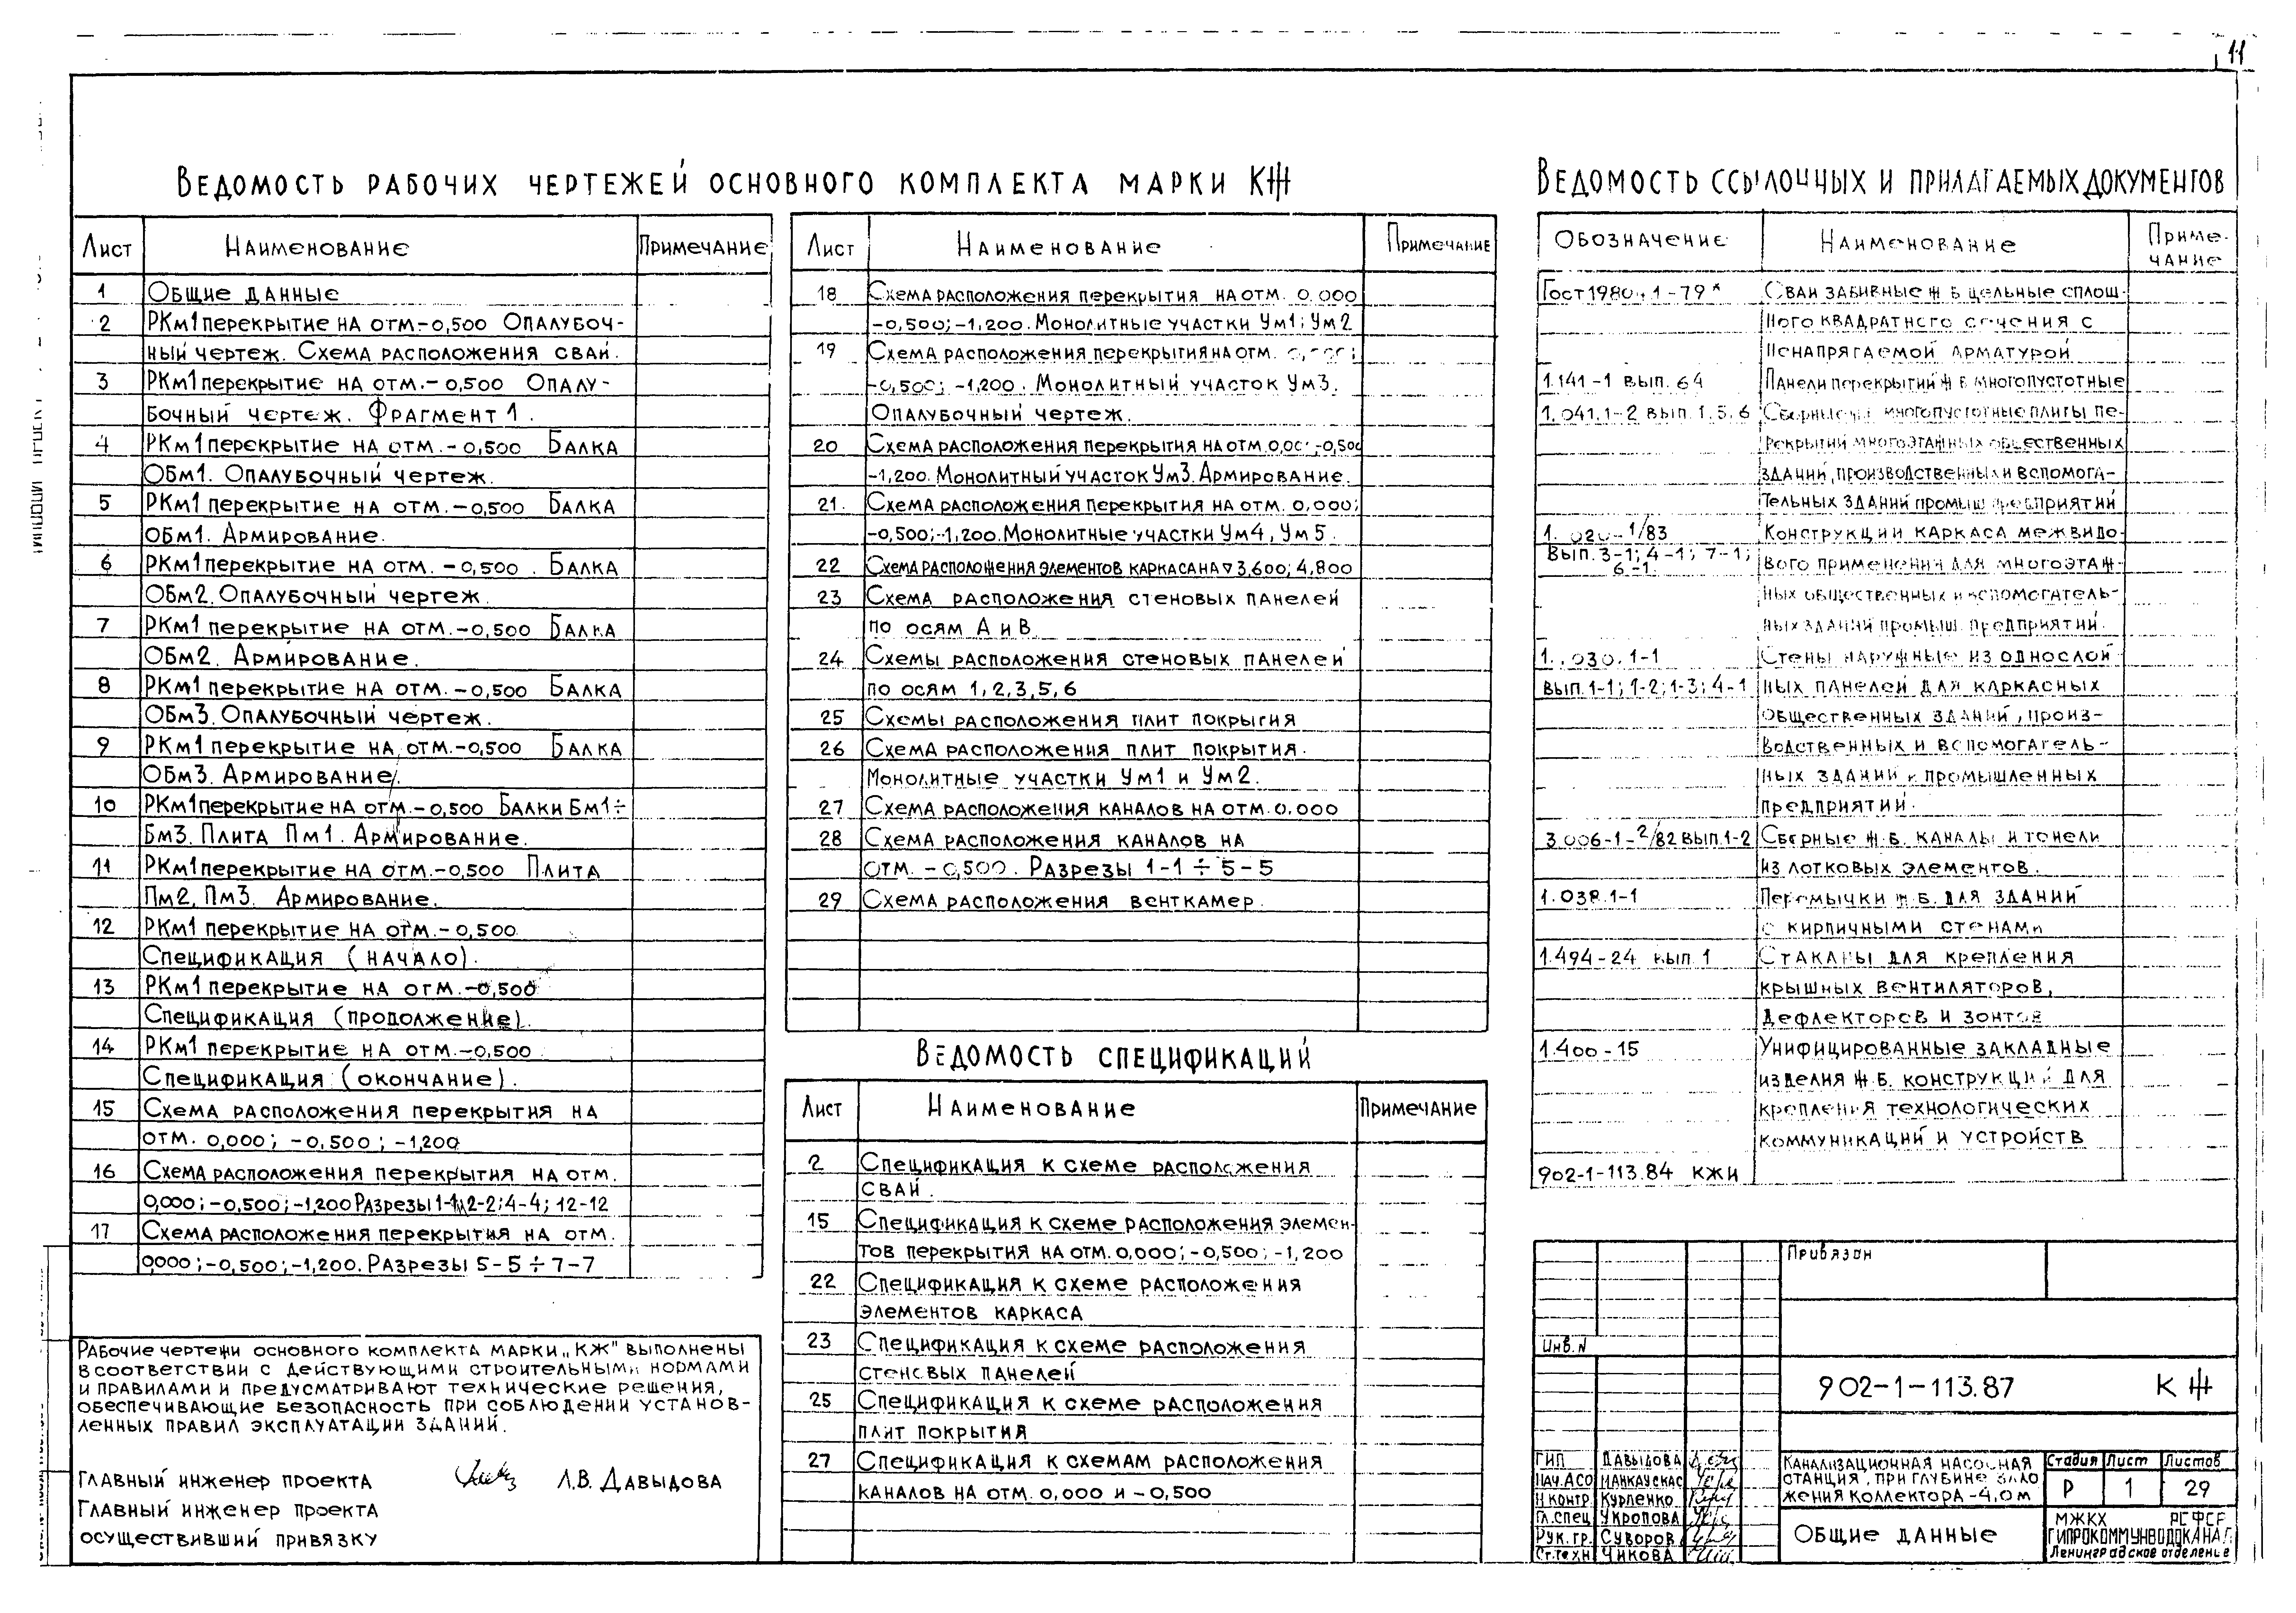 11
Ведомость рабочих чертежей основного комплекта марки КЖ
Лист Наименование Примечание
1 Общие данные
2 РКм1 перекрытие на отм-0,500 Опалубоч-
ный чертеж. Схема расположения свай.
3 РКм1 перекрытие на отм.-0,500 Опалу-
бочный чертеж. Фрагмент 1.
4 РКм1 перекрытие на отм.-0,500 Балка
ОБм1. Опалубочный чертеж.
5 РКм1 перекрытие на отм.-0,500 Балка
ОБм1. Армирование.
6 РКм1 перекрытие на отм.-0,500. Балка
ОБм2. Опалубочный чертеж.
7 РКм1 перекрытие на отм.-0,500 Балка
ОБм2. Армирование.
8 РКм1 перекрытие на отм.-0,500 Балка
ОБм3. Опалубочный чертеж.
9 РКм1 перекрытие на отм.-0,500 Балка
ОБм3. Армирование.
10 РКм1 перекрытие на отм.-0,500 Балки Бм1÷
Бм3. Плита Пм1. Армирование.
11 РКм1 перекрытие на отм.-0,500 Плита
Пм2, Пм3. Армирование.
12 РКм1 перекрытие на отм.-0,500
Спецификация (начало).
13 РКм1 перекрытие на отм.-0,500
Спецификация (продолжение).
14 РКм1 перекрытие на отм.-0,500
Спецификация (окончание).
15 Схема расположения перекрытия на
отм. 0,000; -0,500; -1,200
16 Схема расположения перекрытия на отм.
0,000; -0,500; -1,200 Разрезы 1-1; 2-2; 4-4; 12-12
17 Схема расположения перекрытия на отм.
0,000; -0,500; -1,200. Разрезы 5-5÷7-7
Рабочие чертежи основного комплекта марки „КЖ" выполнены
в соответствии с действующими строительными нормами
и правилами и предусматривают технические решения,
обеспечивающие безопасность при соблюдении установ-
ленных правил эксплуатации зданий.
Главный инженер проекта Л.В. Давыдова
Главный инженер проекта
осуществивший привязку
Лист Наименование Примечание
18 Схема расположения перекрытия на отм. 0.000
-0,500; -1,200. Монолитные участки Ум1; Ум2
19 Схема расположения перекрытия на отм.
-0,500; -1,200. Монолитный участок Ум3.
Опалубочный чертеж.
20 Схема расположения перекрытия на отм 0,00 -0,500
-1,200. Монолитный участок Ум3. Армирование.
21. Схема расположения перекрытия на отм. 0,000;
-0,500; -1,200. Монолитные участки Ум4, Ум5.
22 Схема расположения элементов каркаса на ▽ 3,600; 4,800
23 Схема расположения стеновых панелей
по осям А и В
24 Схемы расположения стеновых панелей
по осям 1,2,3,5,6
25 Схемы расположения плит покрытия
26 Схема расположения плит покрытия.
Монолитные участки Ум1 и Ум2.
27 Схема расположения каналов на отм. 0.000
28 Схема расположения каналов на
отм. -0,500. Разрезы 1-1÷5-5
29 Схема расположения венткамер.
Ведомость спецификаций
Лист Наименование Примечание
2 Спецификация к схеме расположения
свай.
15 Спецификация к схеме расположения элемен-
тов перекрытия на отм. 0,000; -0,500; -1,200
22 Спецификация к схеме расположения
элементов каркаса
23 Спецификация к схеме расположения
стеновых панелей
25 Спецификация к схеме расположения
плит покрытия
27 Спецификация к схемам расположения
каналов на отм. 0,000 и -0,500
Ведомость ссылочных и прилагаемых документов
Обозначение Наименование Приме-
чание
Гост 1980 .1-79* Сваи забивные ж б цельные сплош-
ного квадратного сечения с
ненапрягаемой арматурой
1.141-1 вып. 64 Панели перекрытий ж б многопустотные
1.041.1-2 вып. 1,5,6 Сборные многопустотные плиты пе-
рекрытий многоэтажных общественных
зданий, производственных и вспомога-
тельных зданий промыш предприятий
1.020-1/83 Конструкции каркаса межвидо-
Вып. 3-1; 4-1; 7-1; вого применения для многоэтаж-
6-1.
ных общественных и вспомогатель-
ных зданий промыш. предприятий.
1.030.1-1 Стены наружные из однослой-
вып. 1-1; 1-2; 1-3; 4-1 ных панелей для каркасных
общественных зданий, произ-
водственных и вспомогатель-
ных зданий промышленных
предприятий.
3.006-1-2/82 вып. 1-2 Сберные ж.б. каналы и тонели
из лотковых элементов.
1.038.1-1 Перемычки ж.б. для зданий
с кирпичными стенами
1.494-24 вып. 1 Стаканы для крепления
крышных вентиляторов,
дефлекторов и зонтов
1.400-15 Унифицированные закладные
изделия ж.б. конструкций для
крепления технологических
коммуникаций и устройств
902-1-113.84 КЖИ
Привязан
Инв. N
902-1-113.87 КЖ
ГИП Давыдова
Нач.АСО Манкаускас
Н контр. Курпенко
Гл.спец Укропова
Рук.гр. Суворов
Ст.техн Чикова
Канализационная насосная
станция, при глубине зало
жения коллектора -4,0 м
Стадия Лист Листов
Р 1 29
Общие данные
МЖКХ РСФСР
Гипрокоммунводоканал
Ленинградское отделение